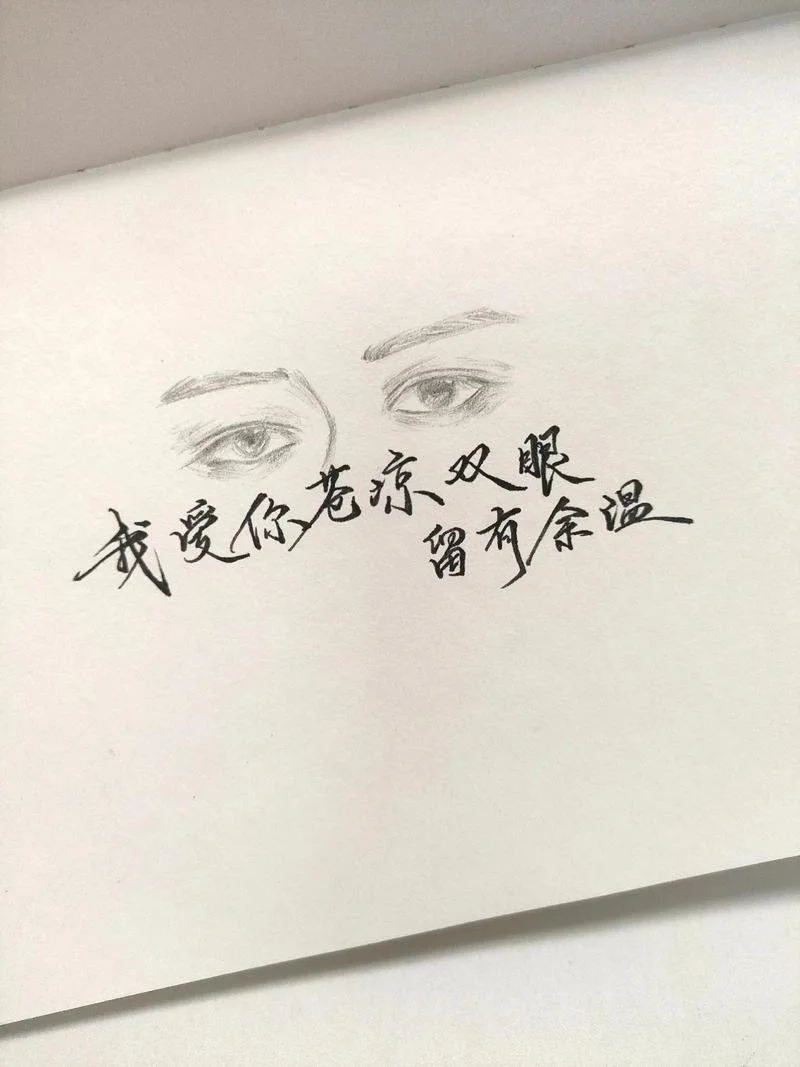 我爱你苍凉双眼
留有余温